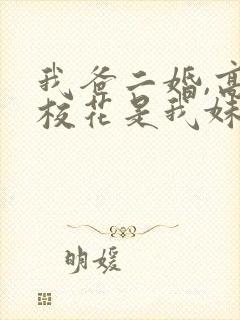 我爸二婚,高
校花是我妹
明媛